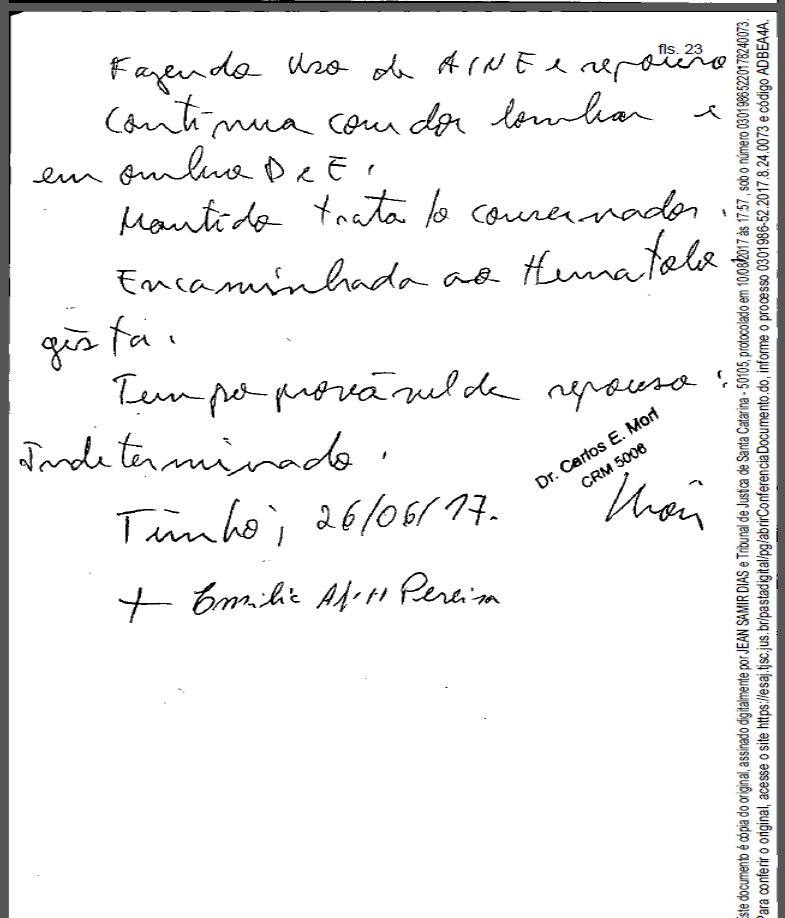 fls. 23
Fazendo uso de AINE e repouso
Continua com dor lombar e
em ombro D e E.
Mantido trata/o conservador.
Encaminhada ao Hematolo-
gista.
Tempo provável de repouso:
Indeterminado.
Timbó, 26/06/17.
Dr. Carlos E. Mori
CRM 5006
+ Emilie Pereira
Este documento é cópia do original, assinado digitalmente por JEAN SAMIR DIAS e Tribunal de Justica de Santa Catarina - 50105, protocolado em 10/08/2017 às 17:57 , sob o número 03019865220178240073.
Para conferir o original, acesse o site https://esaj.tjsc.jus.br/pastadigital/pg/abrirConferenciaDocumento.do, informe o processo 0301986-52.2017.8.24.0073 e código ADBEA4A.